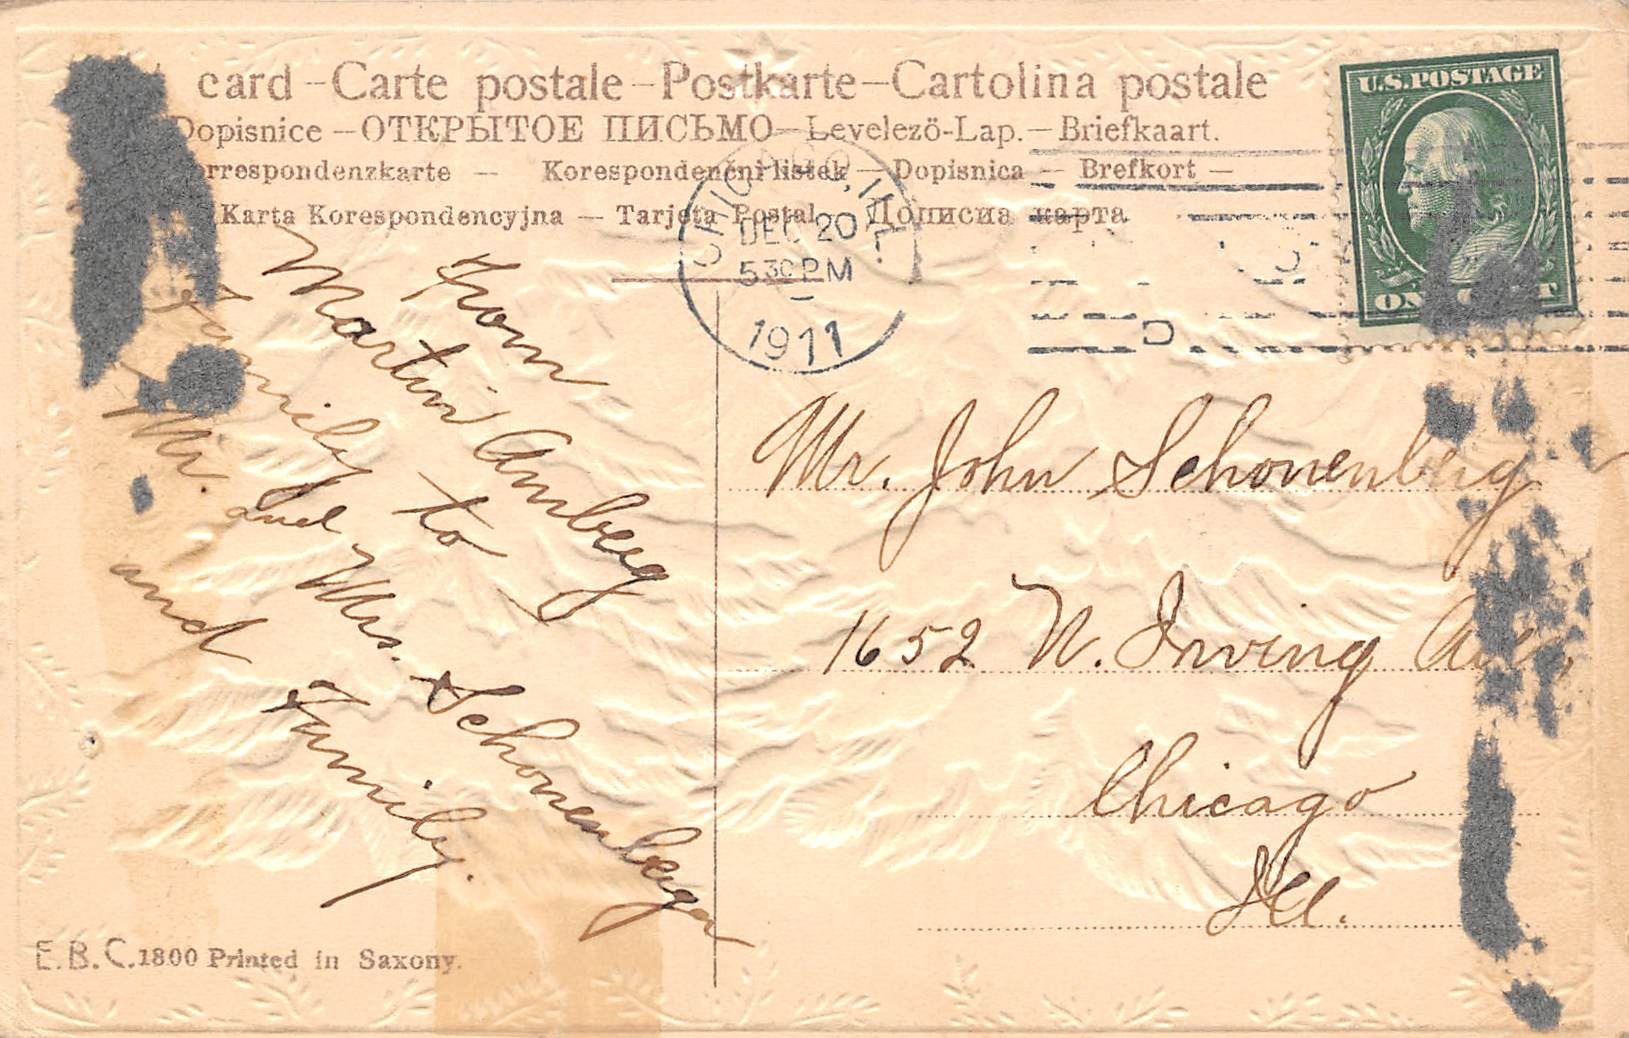 card – Carte postale – Postkarte – Cartolina postale
Dopisnice – ОТКРЫТОЕ ПИСЬМО – Levelezö-Lap. – Briefkaart.
Korespondenční lístek – Dopisnica – Brefkort –
Karta Korespondencyjna – Tarjeta Postal – Дописна карта
U.S. POSTAGE
ONE CENT
CHICAGO, ILL.
DEC 20
530 PM
1911
D
From
Martin Amberg
Family to
Mr. and Mrs. Schonenberger
and Family.
Mr. John Schonenberg
1652 N. Irving Ave.
Chicago
Ill.
E.B.C. 1800 Printed in Saxony.